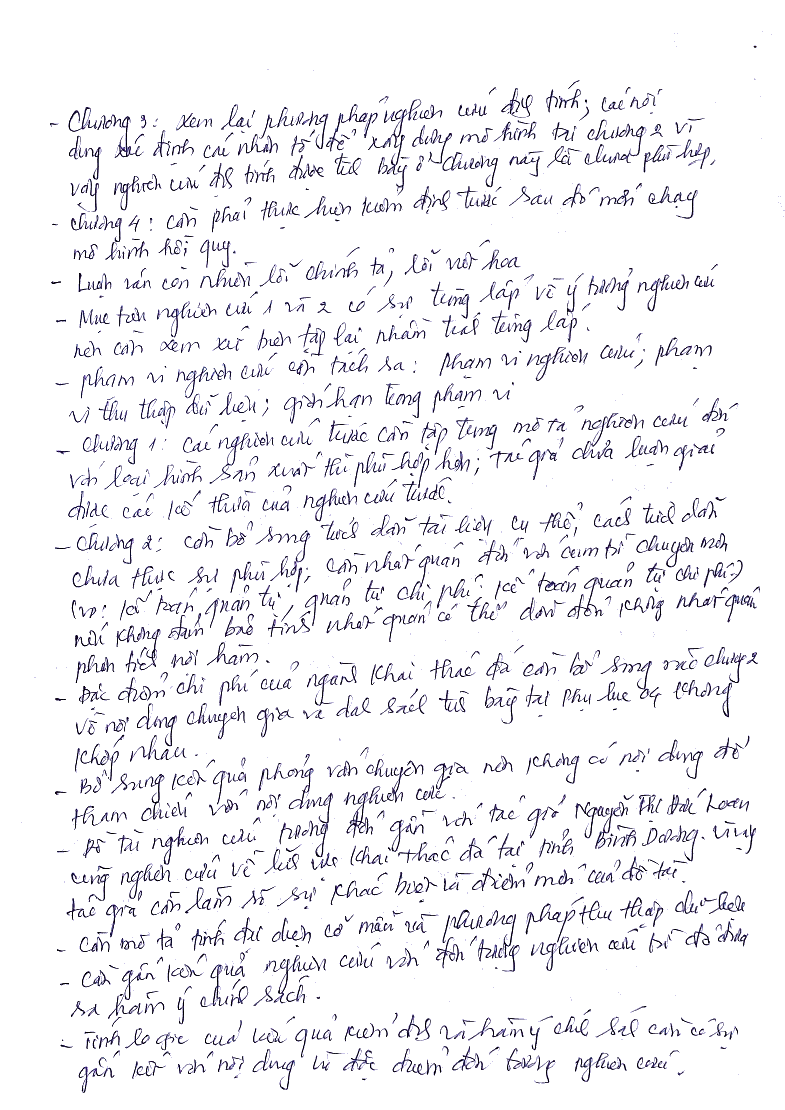 - Chương 3: xem lại phương pháp nghiên cứu định tính; các nội
dung xác định các nhân tố để xây dựng mô hình tại chương 2 vì
vậy nghiên cứu định tính được trình bày ở chương này là chưa phù hợp.
- Chương 4: cần phải thực hiện kiểm định trước sau đó mới chạy
mô hình hồi quy.
- Luận văn còn nhiều lỗi chính tả, lỗi viết hoa
- Mục tiêu nghiên cứu 1 và 2 có sự trùng lắp về ý tưởng nghiên cứu
nên cần xem xét biên tập lại nhằm tránh trùng lắp.
- Phạm vi nghiên cứu cần tách ra: phạm vi nghiên cứu; phạm
vi thu thập dữ liệu; giới hạn trong phạm vi
- Chương 1: Các nghiên cứu trước cần tập trung mô tả nghiên cứu đối
với loại hình sản xuất thì phù hợp hơn; tác giả chưa luận giải
được các kế thừa của nghiên cứu trước.
- Chương 2: cần bổ sung trích dẫn tài liệu cụ thể, cách trích dẫn
chưa thực sự phù hợp; cần nhất quán đối với cụm từ chuyên môn
(VD: kế toán quản trị, quản trị chi phí, kế toán quản trị chi phí)
nếu không đảm bảo tính nhất quán có thể dẫn đến không nhất quán
phân tích nội hàm.
- Đặc điểm chi phí của ngành khai thác đá cần bổ sung vào chương 2
về nội dung chuyên gia và danh sách trình bày tại phụ lục 04 không
khớp nhau.
- Bổ sung kết quả phỏng vấn chuyên gia nên không có nội dung để
tham chiếu với nội dung nghiên cứu.
- Đề tài nghiên cứu tương đối gần với tác giả Nguyễn Thị Đức Loan
cũng nghiên cứu về lĩnh vực khai thác đá tại tỉnh Bình Dương. Vì vậy
tác giả cần làm rõ sự khác biệt và điểm mới của đề tài.
- Cần mô tả tính đại diện cỡ mẫu và phương pháp thu thập dữ liệu
- Cần gắn kết quả nghiên cứu với đối tượng nghiên cứu từ đó đưa
ra hàm ý chính sách.
- Tính logic của kết quả kiểm định và hàm ý chính sách cần có sự
gắn kết với nội dung và đặc điểm đối tượng nghiên cứu.